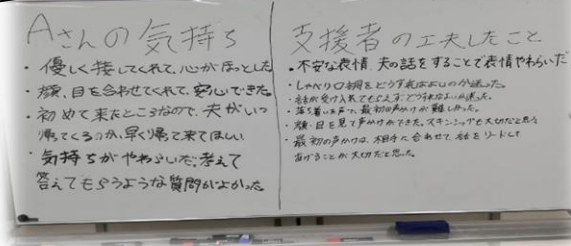 Aさんの気持ち
・優しく接してくれて、心がほっとした
・顔、目を合わせてくれて、安心できた。
・初めて来たところなので、夫がいつ
帰ってくるのか、早く帰って来てほしい
・気持ちがやわらいだ、考えて
答えてもらうような質問がよかった。
支援者の工夫したこと
・不安な表情、夫の話をすることで表情やわらいだ
・しゃべり口調をどうすればよいのか迷った。
・話が受け入れてもらえず、どうすればよいか迷った。
・落ち着いた声で、最初の声かけが難しかった。
・顔・目を見て声かけができた。スキンシップも大切だと思う
・最初の声かけは、相手に合わせて、話をリードして
あげることが大切だと思った。